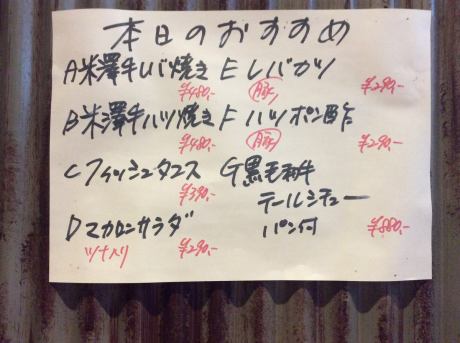 本日のおすすめ
A米澤牛レバ焼き
¥480.-
B米澤牛ハツ焼き
¥480.-
Cフィッシュタコス
¥390.-
Dマカロニサラダ
ツナ入り ¥290.-
Eレバカツ
豚 ¥290.-
Fハツポン酢
豚 ¥290.-
G黒毛和牛
テールシチュー
パン付 ¥880.-